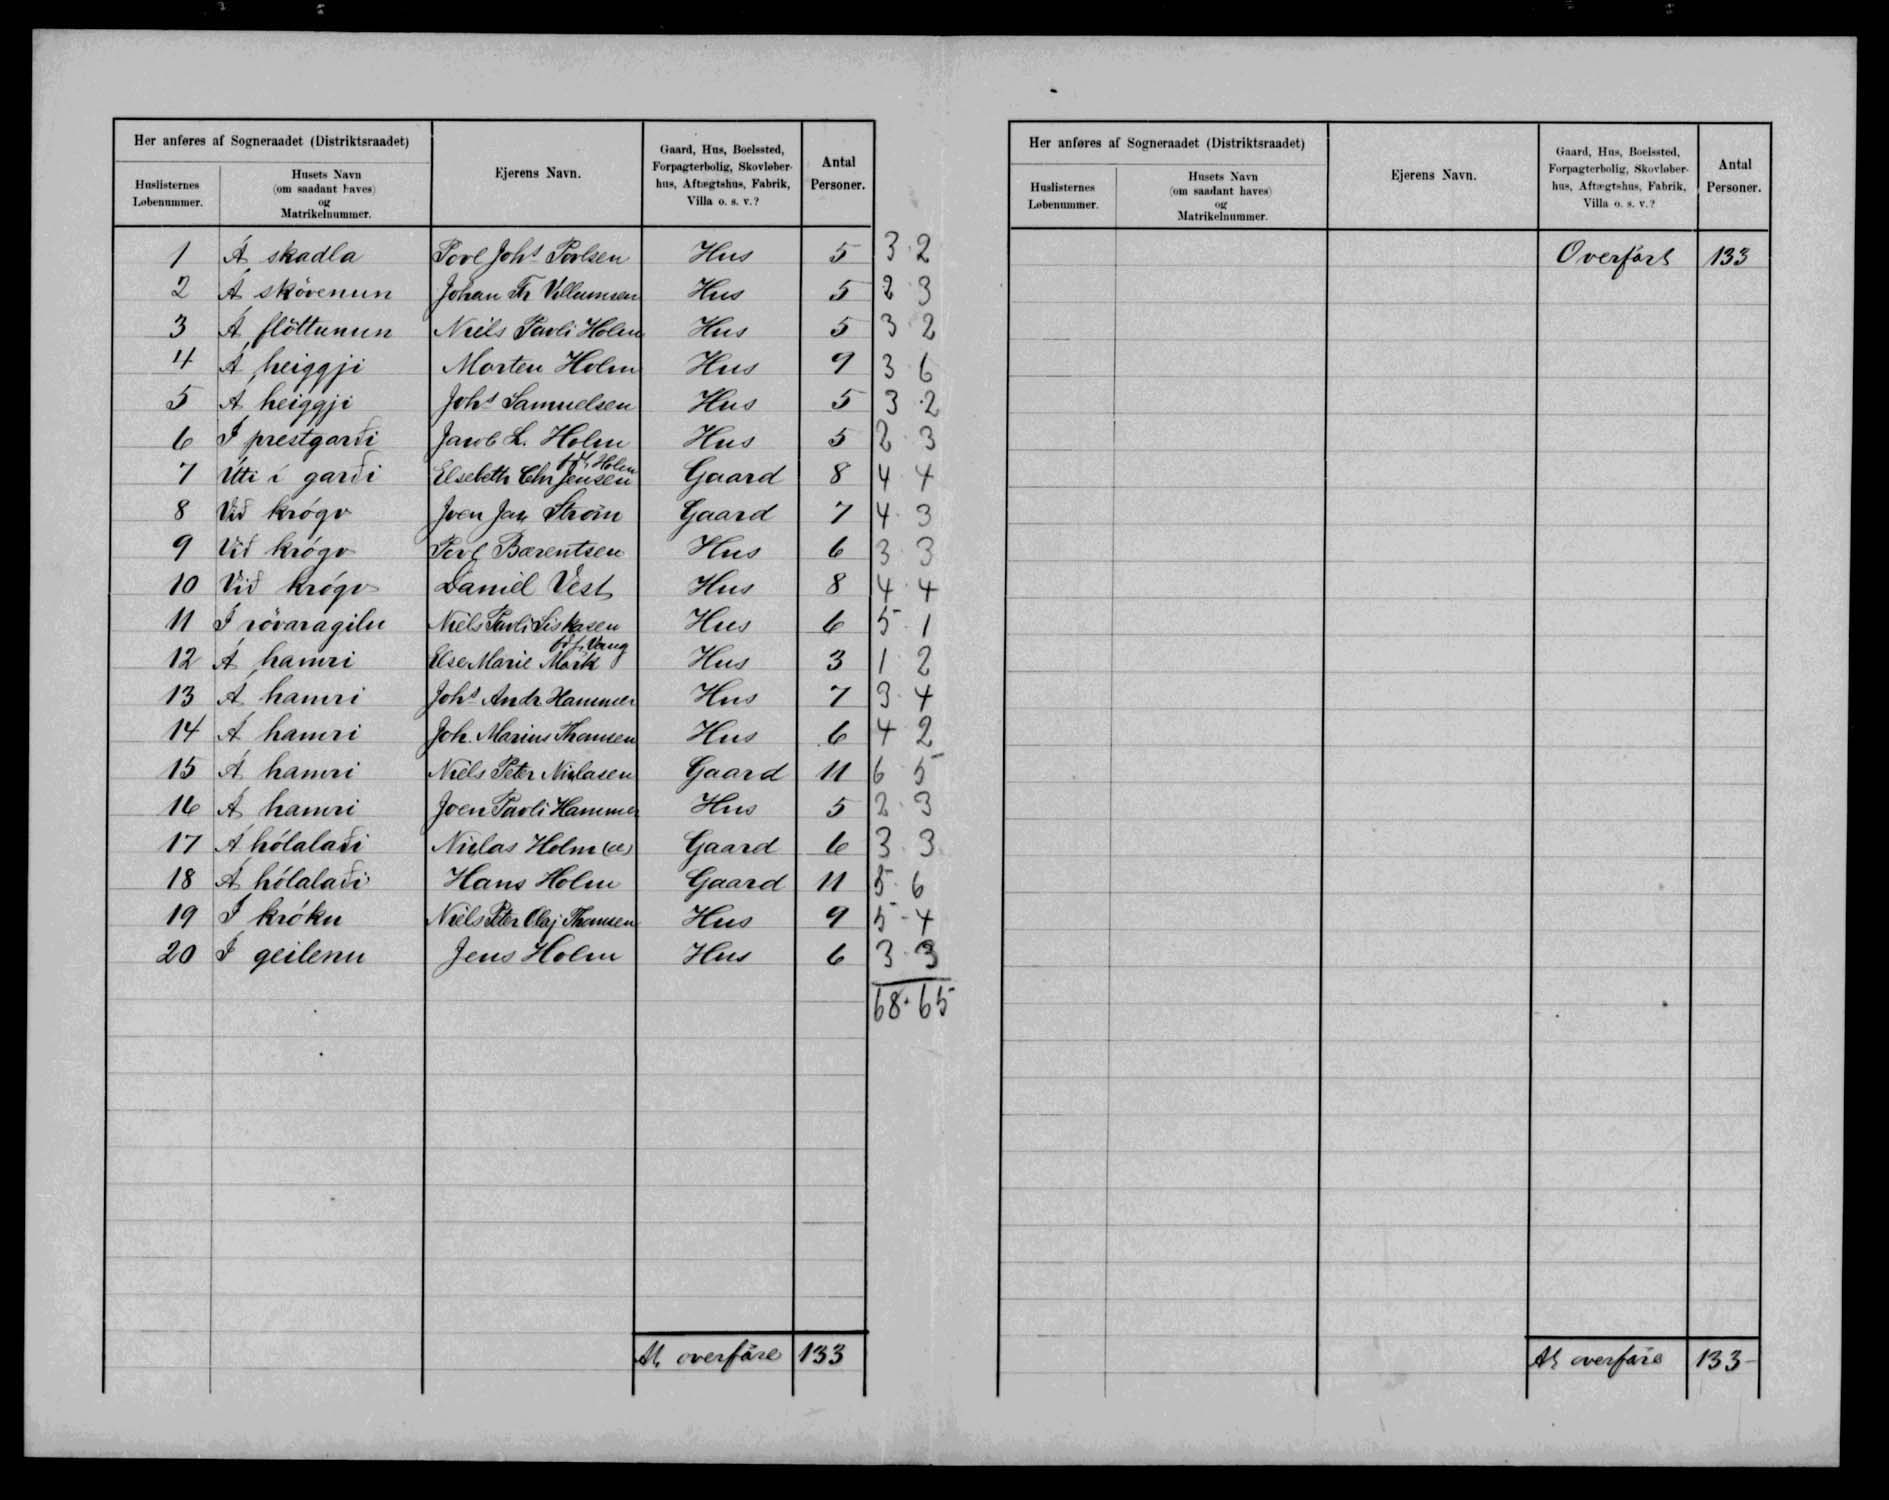 Her anføres af Sogneraadet (Distriktsraadet)
Huslisternes Løbenummer.
Husets Navn (om saadant haves) og Matrikelnummer.
Ejerens Navn.
Gaard, Hus, Boelssted, Forpagterbolig, Skovløber-hus, Aftægtshus, Fabrik, Villa o. s. v.?
Antal Personer.
1 Á skadla Povl Johs Povlsen Hus 5 3 · 2
2 Á skövenun Johan Fr Villumsen Hus 5 2 3
3 Á flöttunun Niels Pavli Holm Hus 5 3 · 2
4 Á heiggji Morten Holm Hus 9 3 · 6
5 Á heiggji Johs Samuelsen Hus 5 3 · 2
6 Í prestgarði Jacob L. Holm Hus 5 2 · 3
7 Úti í garði Elsebeth Chr Jensen født Holm Gaard 8 4 · 4
8 Við krógv Joen Jac Strøm Gaard 7 4 · 3
9 Við krógv Povl Bærentsen Hus 6 3 · 3
10 Við krógv Daniel Vest Hus 8 4 · 4
11 Í rövaragilu Niels Pavli Siskasen Hus 6 5 · 1
12 Á hamri Else Marie Mørk Vang Hus 3 1 · 2
13 Á hamri Johs Andr. Hammer Hus 7 3 · 4
14 Á hamri Joh. Marius Thomsen Hus 6 4 2
15 Á hamri Niels Peter Niclasen Gaard 11 6 5
16 Á hamri Joen Pavli Hammer Hus 5 2 · 3
17 Á hólalaði Niclas Holm Gaard 6 3 · 3
18 Á hólalaði Hans Holm Gaard 11 5 · 6
19 Í króku Niels Peter Olaj Thomsen Hus 9 5 - 4
20 Í geilenu Jens Holm Hus 6 3 · 3
68 · 65
At overføre 133
Her anføres af Sogneraadet (Distriktsraadet)
Huslisternes Løbenummer.
Husets Navn (om saadant haves) og Matrikelnummer.
Ejerens Navn.
Gaard, Hus, Boelssted, Forpagterbolig, Skovløber-hus, Aftægtshus, Fabrik, Villa o. s. v.?
Antal Personer.
Overført 133
At overføre 133